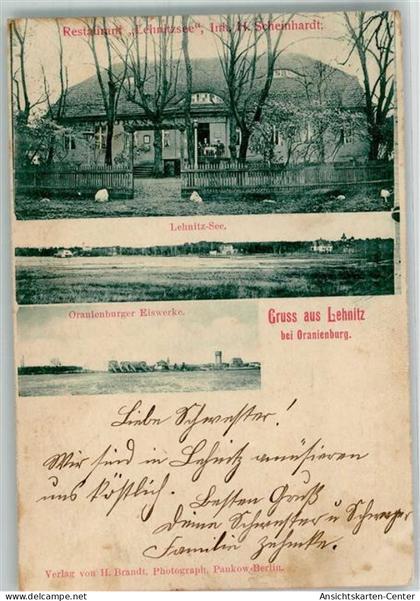 Restaurant „Lehnitzsee“, Inh. H. Scheinhardt.
Lehnitz-See.
Oranienburger Eiswerke.
Gruss aus Lehnitz
bei Oranienburg.
Liebe Schwester!
Wir sind in Lehnitz amüsieren
uns köstlich. Besten Gruß
Deine Schwester u Schwager
Familie Zehmke.
Verlag von H. Brandt, Photograph, Pankow-Berlin.
Ansichtskarten-Center